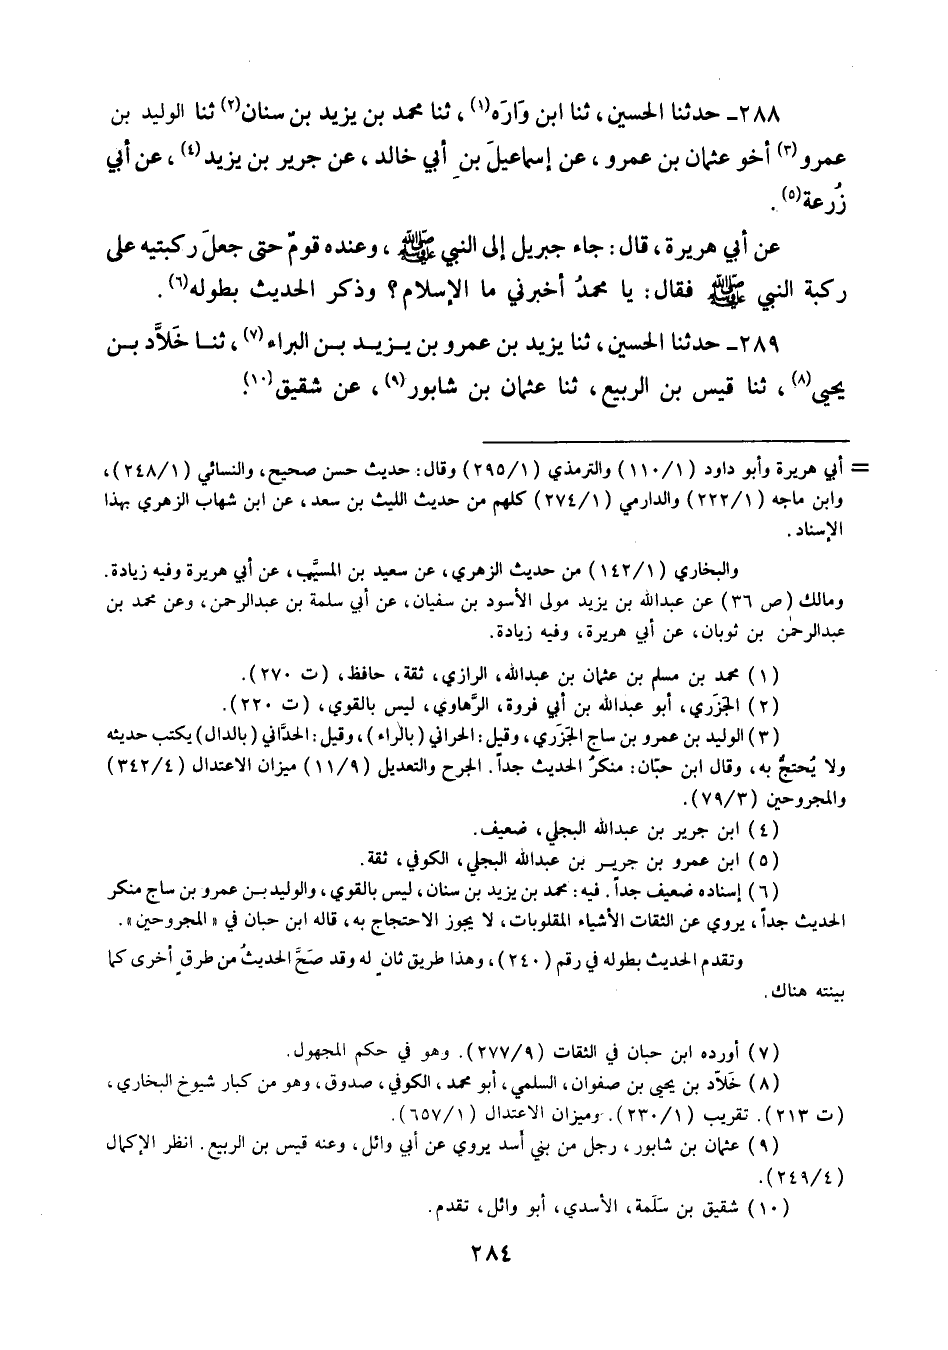 ٢٨٨ـ حدثنا الحسين، ثنا ابن وَارَه(١)، ثنا محمد بن يزيد بن سنان(٢) ثنا الوليد بن
عمرو(٣) أخو عثمان بن عمرو، عن إسماعيلَ بنِ أبي خالد، عن جرير بن يزيد(٤)، عن أبي
زُرعة(٥).
عن أبي هريرة، قال: جاء جبريل إلى النبي ﷺ، وعنده قومٌ حتى جعلَ ركبتيه على
ركبة النبي ﷺ فقال: يا محمدُ أخبرني ما الإسلام؟ وذكر الحديث بطوله(٦).
٢٨٩ـ حدثنا الحسين، ثنا يزيد بن عمرو بن يـزيـد بـن البراء(٧)، ثنـا خَلاَّد بـن
يحيى(٨)، ثنا قيس بن الربيع، ثنا عثمان بن شابور(٩)، عن شقيق(١٠).
= أبي هريرة وأبو داود (١/١١٠) والترمذي (١/٢٩٥) وقال: حديث حسن صحيح، والنسائي (١/٢٤٨)،
وابن ماجه (١/٢٢٢) والدارمي (١/٢٧٤) كلهم من حديث الليث بن سعد، عن ابن شهاب الزهري بهذا
الإسناد.
والبخاري (١/١٤٢) من حديث الزهري، عن سعيد بن المسيَّب، عن أبي هريرة وفيه زيادة.
ومالك (ص ٣٦) عن عبدالله بن يزيد مولى الأسود بن سفيان، عن أبي سلمة بن عبدالرحمن، وعن محمد بن
عبدالرحمٰن بن ثوبان، عن أبي هريرة، وفيه زيادة.
(١) محمد بن مسلم بن عثمان بن عبدالله، الرازي، ثقة، حافظ، (ت ٢٧٠).
(٢) الجَزَري، أبو عبدالله بن أبي فروة، الرَّهاوي، ليس بالقوي، (ت ٢٢٠).
(٣) الوليد بن عمرو بن ساج الجَزَري، وقيل: الحراني (بالراء)، وقيل: الحدَّاني (بالدال) يكتب حديثه
ولا يُحتجُّ به، وقال ابن حبّان: منكرُ الحديث جداً. الجرح والتعديل (٩/١١) ميزان الاعتدال (٤/٣٤٢)
والمجروحين (٣/٧٩).
(٤) ابن جرير بن عبدالله البجلي، ضعيف.
(٥) ابن عمرو بن جريـر بن عبدالله البجلي، الكوفي، ثقة.
(٦) إسناده ضعيف جداً. فيه: محمد بن يزيد بن سنان، ليس بالقوي، والوليد بـن عمرو بن ساج منكر
الحديث جداً، يروي عن الثقات الأشياء المقلوبات، لا يجوز الاحتجاج به، قاله ابن حبان في «المجروحين».
وتقدم الحديث بطوله في رقم (٢٤٠)، وهذا طريق ثانٍ له وقد صَحَّ الحديثُ من طرقٍ أخرى كما
بينته هناك.
(٧) أورده ابن حبان في الثقات (٩/٢٧٧). وهو في حكم المجهول.
(٨) خَلاّد بن يحيى بن صفوان، السلمي، أبو محمد، الكوفي، صدوق، وهو من كبار شيوخ البخاري،
(ت ٢١٣). تقريب (١/٢٣٠). وميزان الاعتدال (١/٦٥٧).
(٩) عثمان بن شابور، رجل من بني أسد يروي عن أبي وائل، وعنه قيس بن الربيع. انظر الإكمال
(٤/٢٤٩).
(١٠) شقيق بن سَلَمة، الأسدي، أبو وائل، تقدم.
٢٨٤